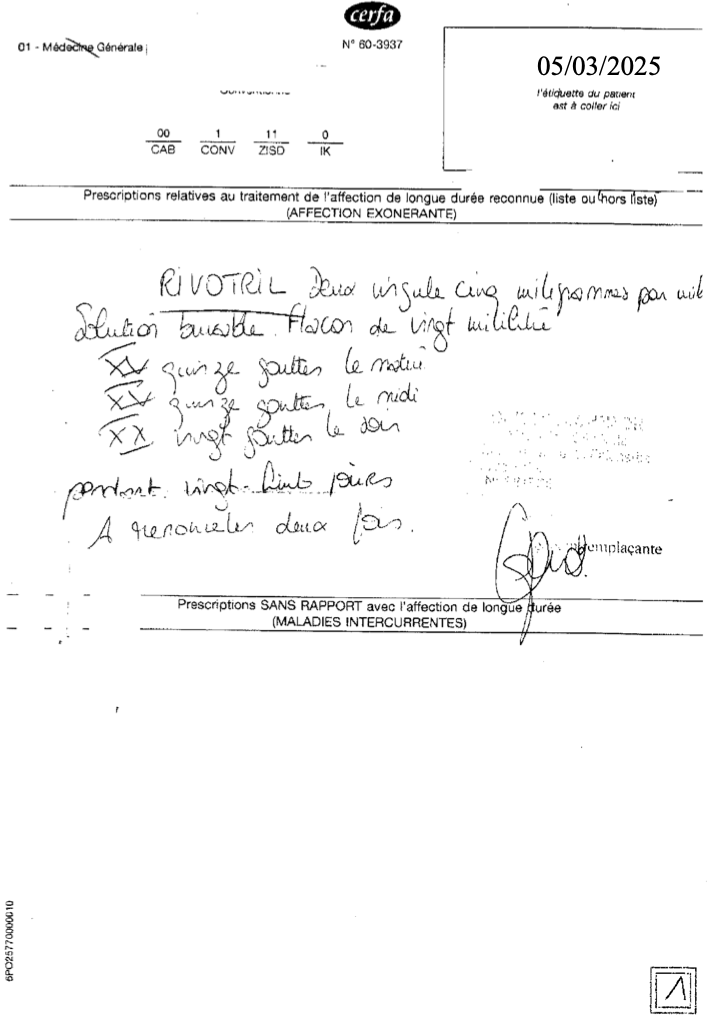 cerfa
N° 60-3937
01 - Médecine Générale
05/03/2025
l'étiquette du patient
est à coller ici
00 1 11 0
CAB CONV ZISD IK
Prescriptions relatives au traitement de l'affection de longue durée reconnue (liste ou hors liste)
(AFFECTION EXONERANTE)
RIVOTRIL Deux virgule Cinq miligrammes par
Solution buvable. Flacon de vingt
XV quinze gouttes le matin
XV quinze gouttes le midi
XX vingt gouttes le soir
pendant vingt-huit jours
A renouveler deux fois.
emplaçante
Prescriptions SANS RAPPORT avec l'affection de longue durée
(MALADIES INTERCURRENTES)
6PO25770000010
1